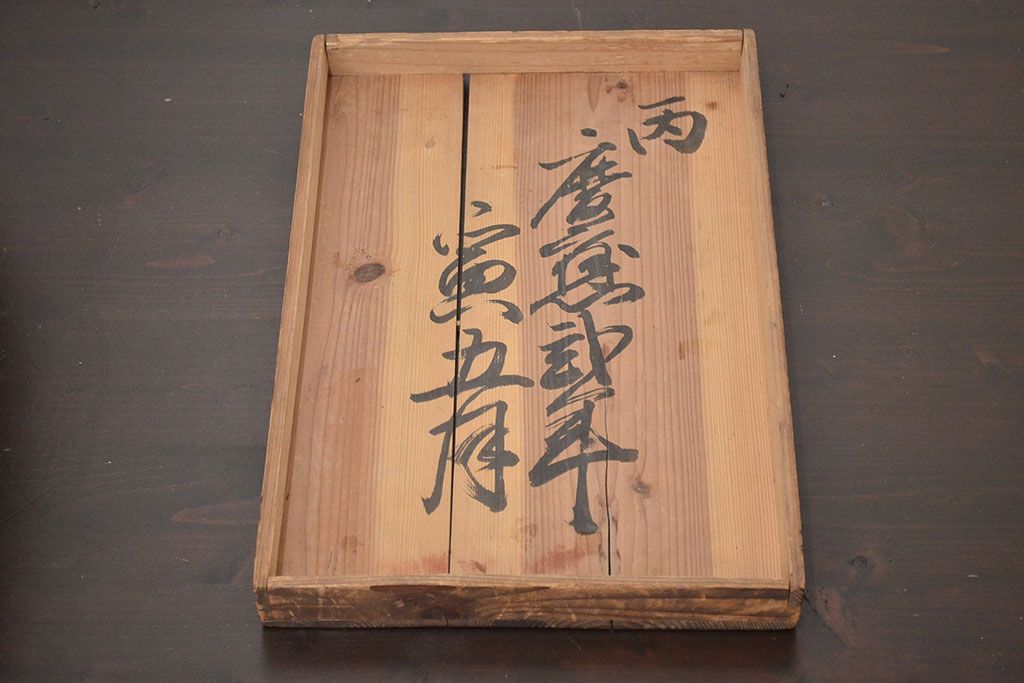 丙
慶應弐年
寅五月